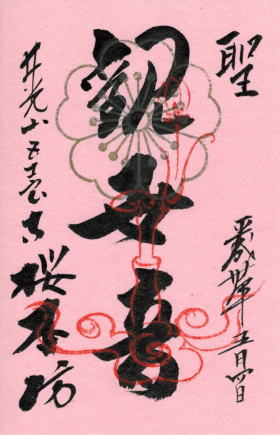 聖
平成年五月四日
観世音
井光山五臺寺桜本坊